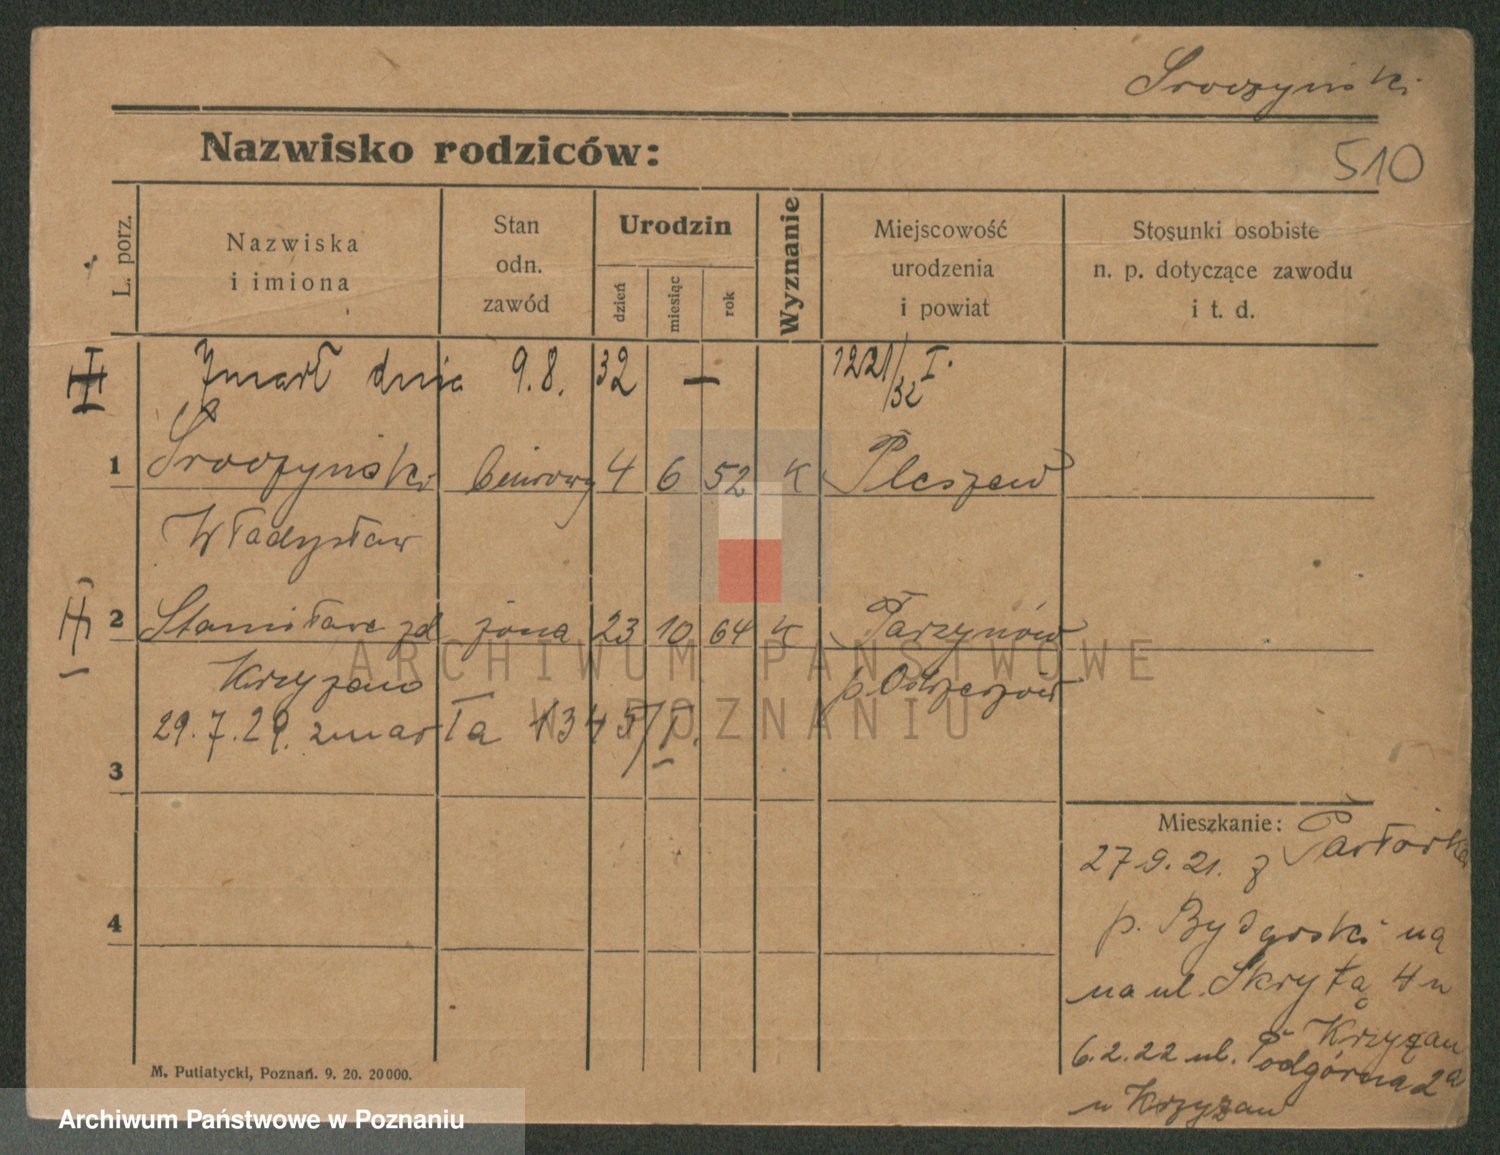 Sroczyński
Nazwisko rodziców:
510
L. porz.
Nazwiska
i imiona
Stan
odn.
zawód
Urodzin
dzień
miesiąc
rok
Wyznanie
Miejscowość
urodzenia
i powiat
Stosunki osobiste
n. p. dotyczące zawodu
i t. d.
Zmarł dnia 9.8.32 — 1221/32 I.
1 Sroczyński biurowy 4 6 52 K Pleszew
Władysław
2 Stanisława zd żona 23 10 64 K Parzynów
Krzyzano p. Ostrzeszów
29.7.29. zmarła 1345/I.
3
4
Mieszkanie:
27 9. 21. z
p. Bydgoski
na ul. Skrytą 4 u
Krzyżan
6.2.22 ul. Podgórna 2a
u Krzyżan
M. Putiatycki, Poznań. 9. 20. 20000.
ARCHIWUM PAŃSTWOWE
W POZNANIU
Archiwum Państwowe w Poznaniu